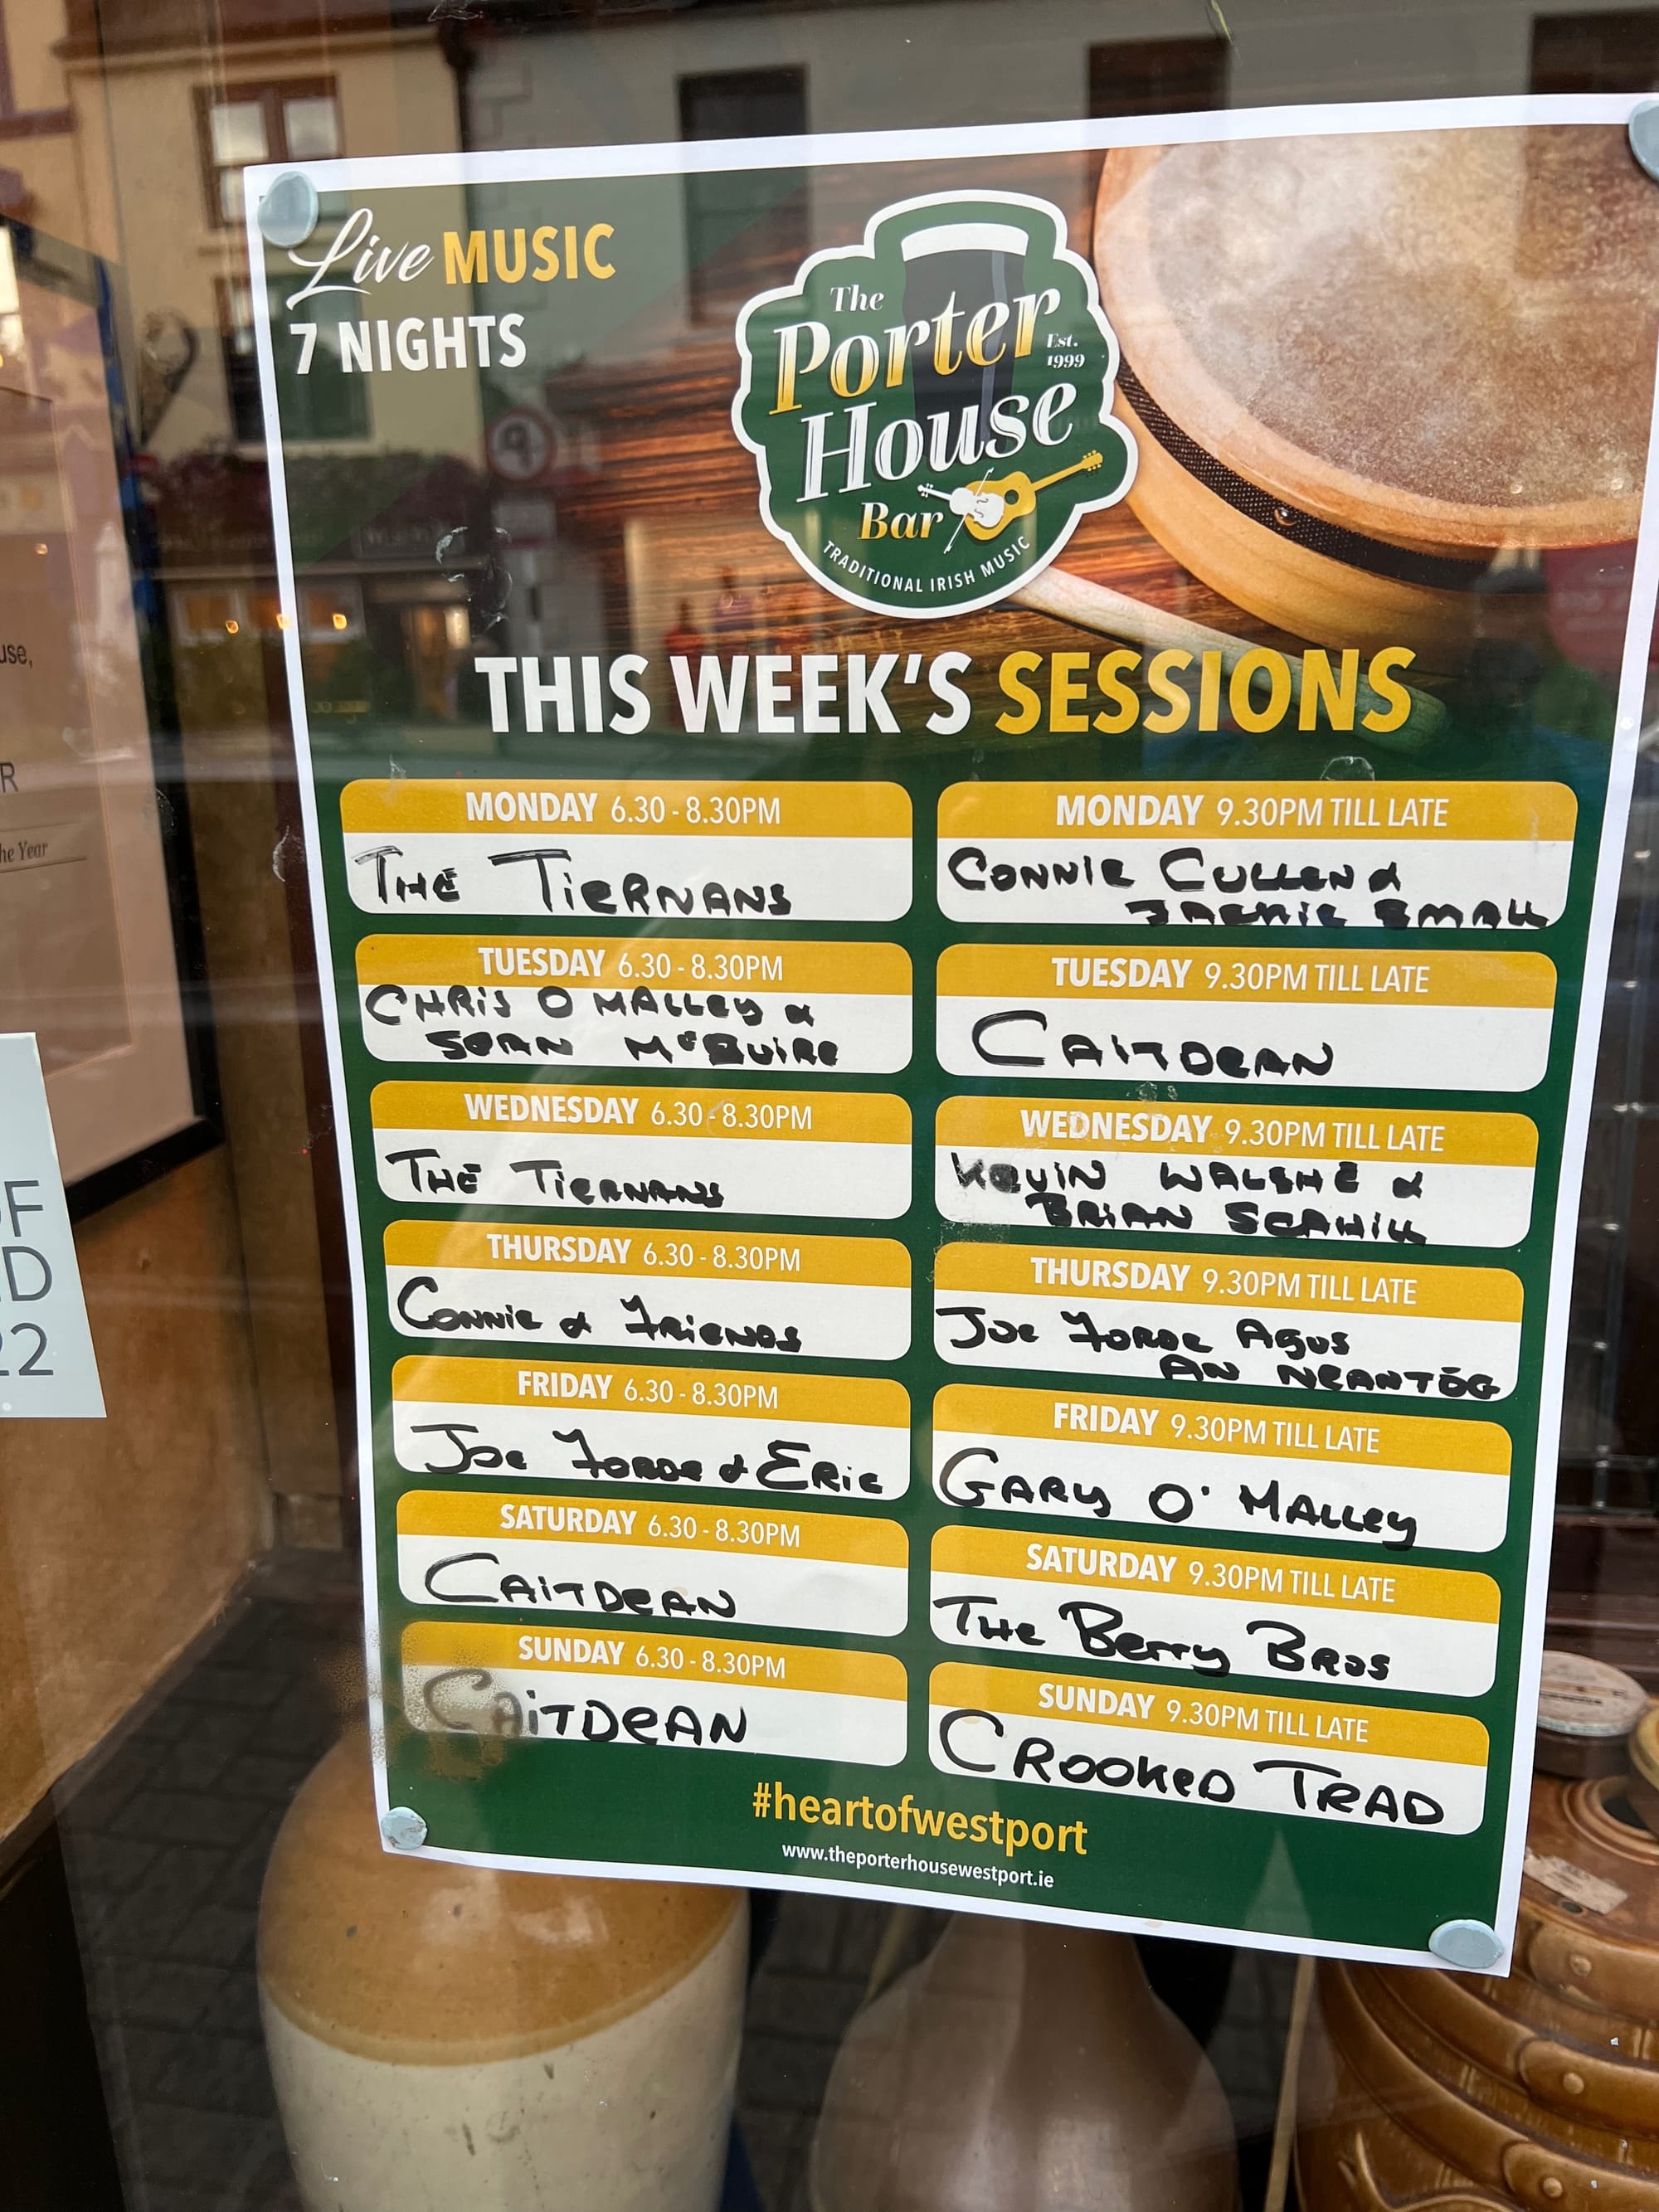 Live MUSIC
7 NIGHTS
The
Porter
Est.
1999
House
Bar
TRADITIONAL IRISH MUSIC
THIS WEEK'S SESSIONS
MONDAY 6.30 - 8.30PM
THE TIERNANS
MONDAY 9.30PM TILL LATE
CONNIE CULLEN &
JACKIE SMALL
TUESDAY 6.30 - 8.30PM
CHRIS O MALLEY &
SEAN McGUIRE
TUESDAY 9.30PM TILL LATE
CAITDEAN
WEDNESDAY 6.30 - 8.30PM
THE TIERNANS
WEDNESDAY 9.30PM TILL LATE
KEVIN WALSHE &
BRIAN SCAHILL
THURSDAY 6.30 - 8.30PM
CONNIE & FRIENDS
THURSDAY 9.30PM TILL LATE
JOE FORDE AGUS
AN NEANTÓG
FRIDAY 6.30 - 8.30PM
JOE FORDE & ERIC
FRIDAY 9.30PM TILL LATE
GARY O' MALLEY
SATURDAY 6.30 - 8.30PM
CAITDEAN
SATURDAY 9.30PM TILL LATE
THE Berry BROS
SUNDAY 6.30 - 8.30PM
CAITDEAN
SUNDAY 9.30PM TILL LATE
CROOKED TRAD
#heartofwestport
www.theporterhousewestport.ie
use,
R
he Year
OF
D
22